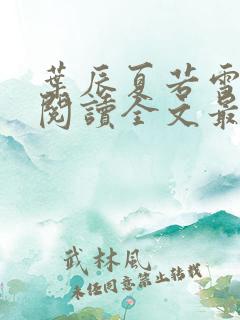 葉辰夏若雪
閱讀全文最
武林風
未经同意禁止转载